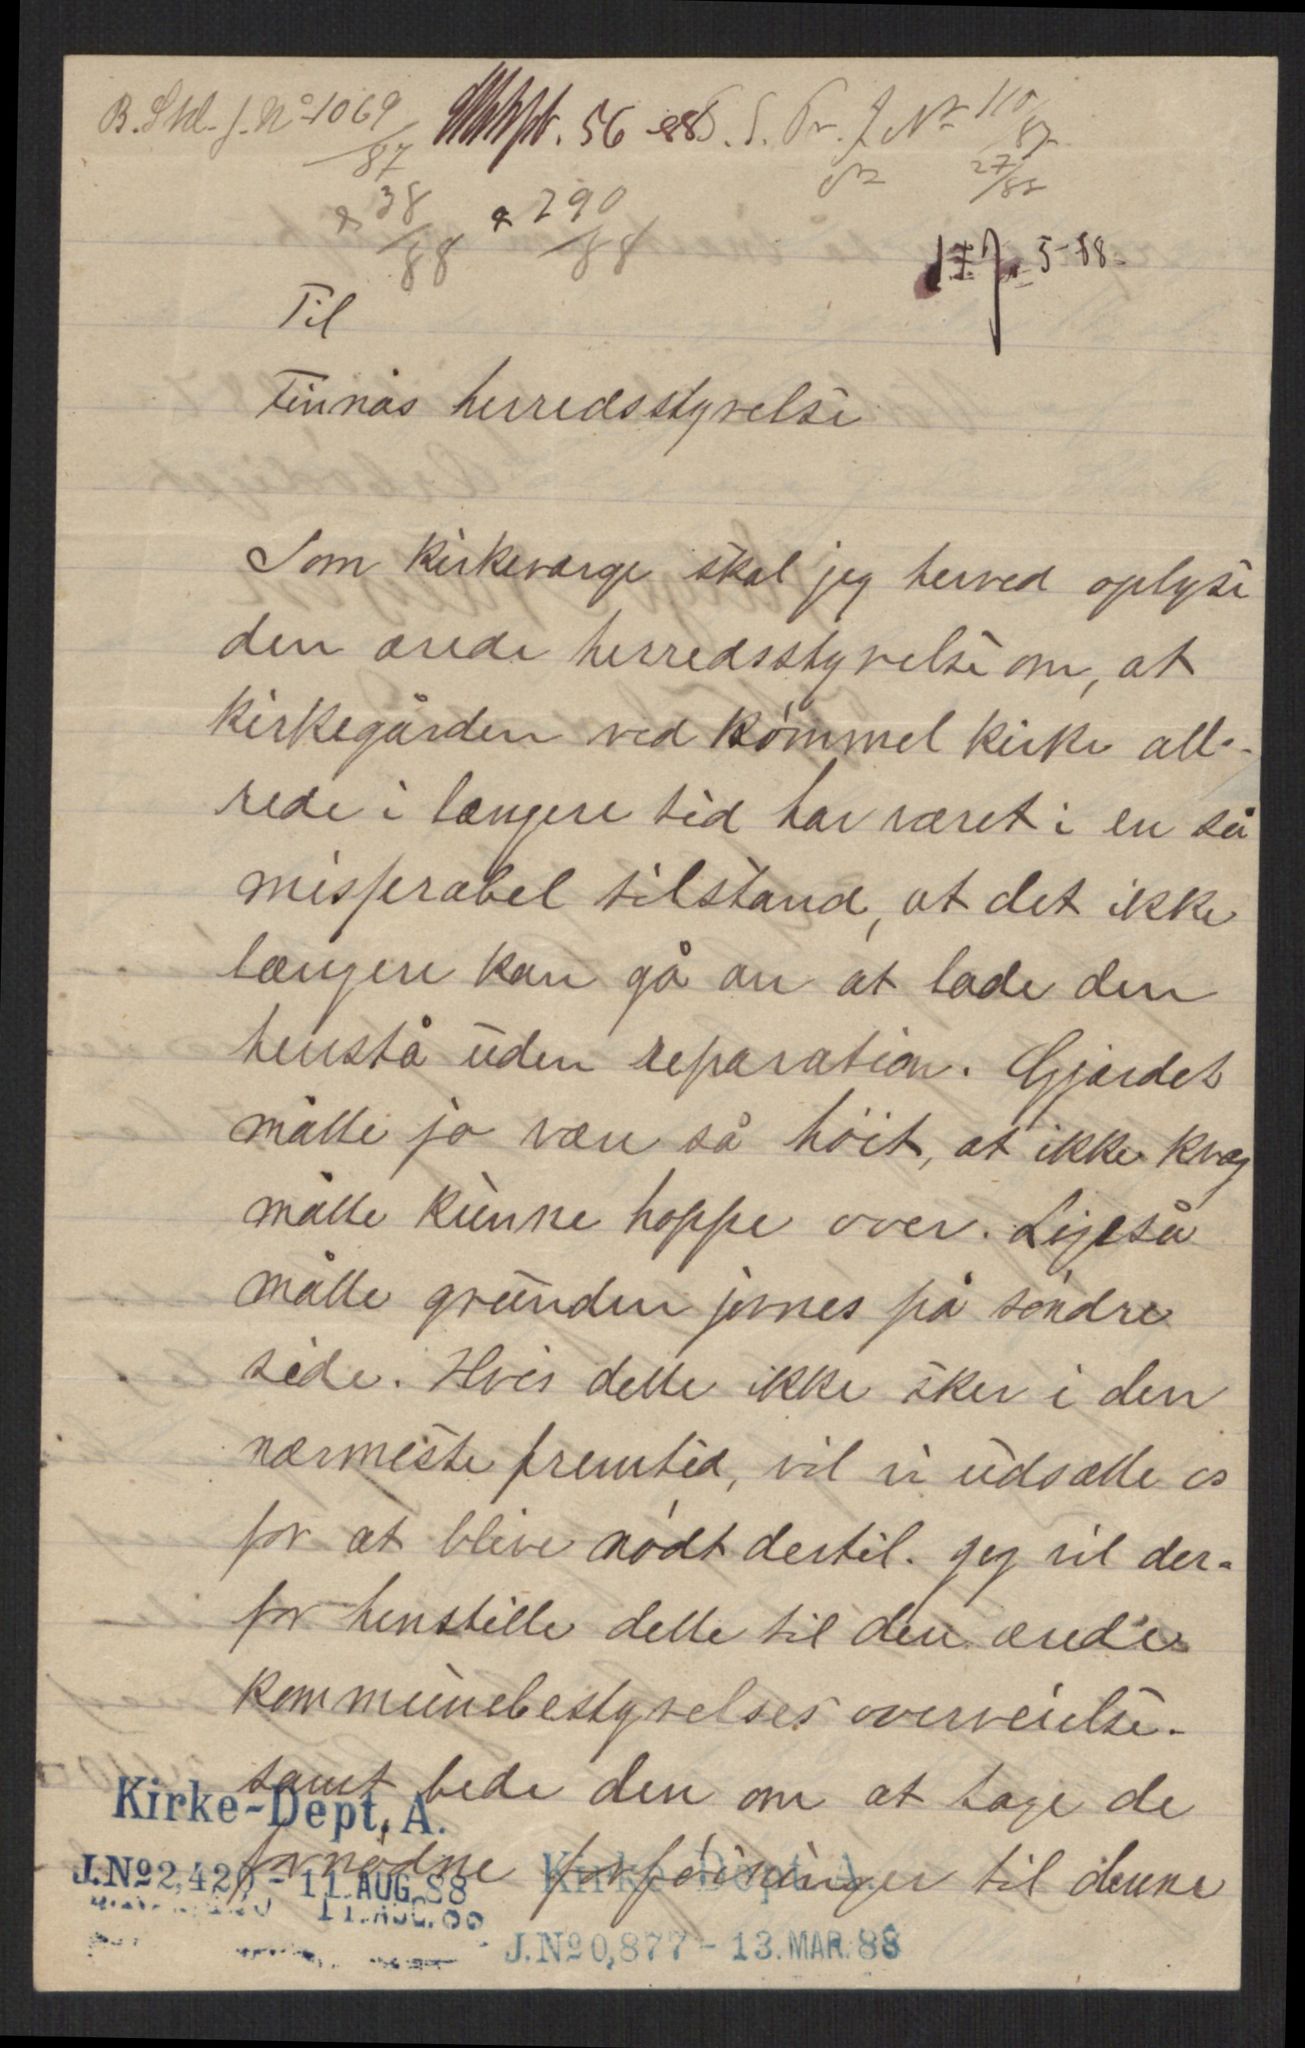 B. Stvl. J. Nº 1069/87
56 88
S. Pr. J Nr 110/87
27/88
& 38/88 & 290/88
5-88-
Til
Finnås herredsstyrelse
Som kirkeværge skal jeg herved oplyse
den ærede herredsstyrelse om, at
kirkegården ved Bømmel kirke alle-
rede i længere tid har været i en så
misserabel tilstand, at det ikke
længere kan gå an at lade den
henstå uden reparation. Gjærdet
måtte jo være så høit, at ikke kvæg
måtte kunne hoppe over. Ligeså
måtte grunden jevnes på søndre
side. Hvis dette ikke sker i den
nærmeste fremtid, vil vi udsætte os
for at blive nødt dertil. Jeg vil der-
for henstille dette til den ærede
kommunebestyrelses overveielse
samt bede den om at tage de
fornødne forføininger til denne
Kirke-Dept, A.
J.Nº 2,420 - 11.AUG.88
Kirke-Dept. A.
J.Nº 0,877 - 13.MAR.88